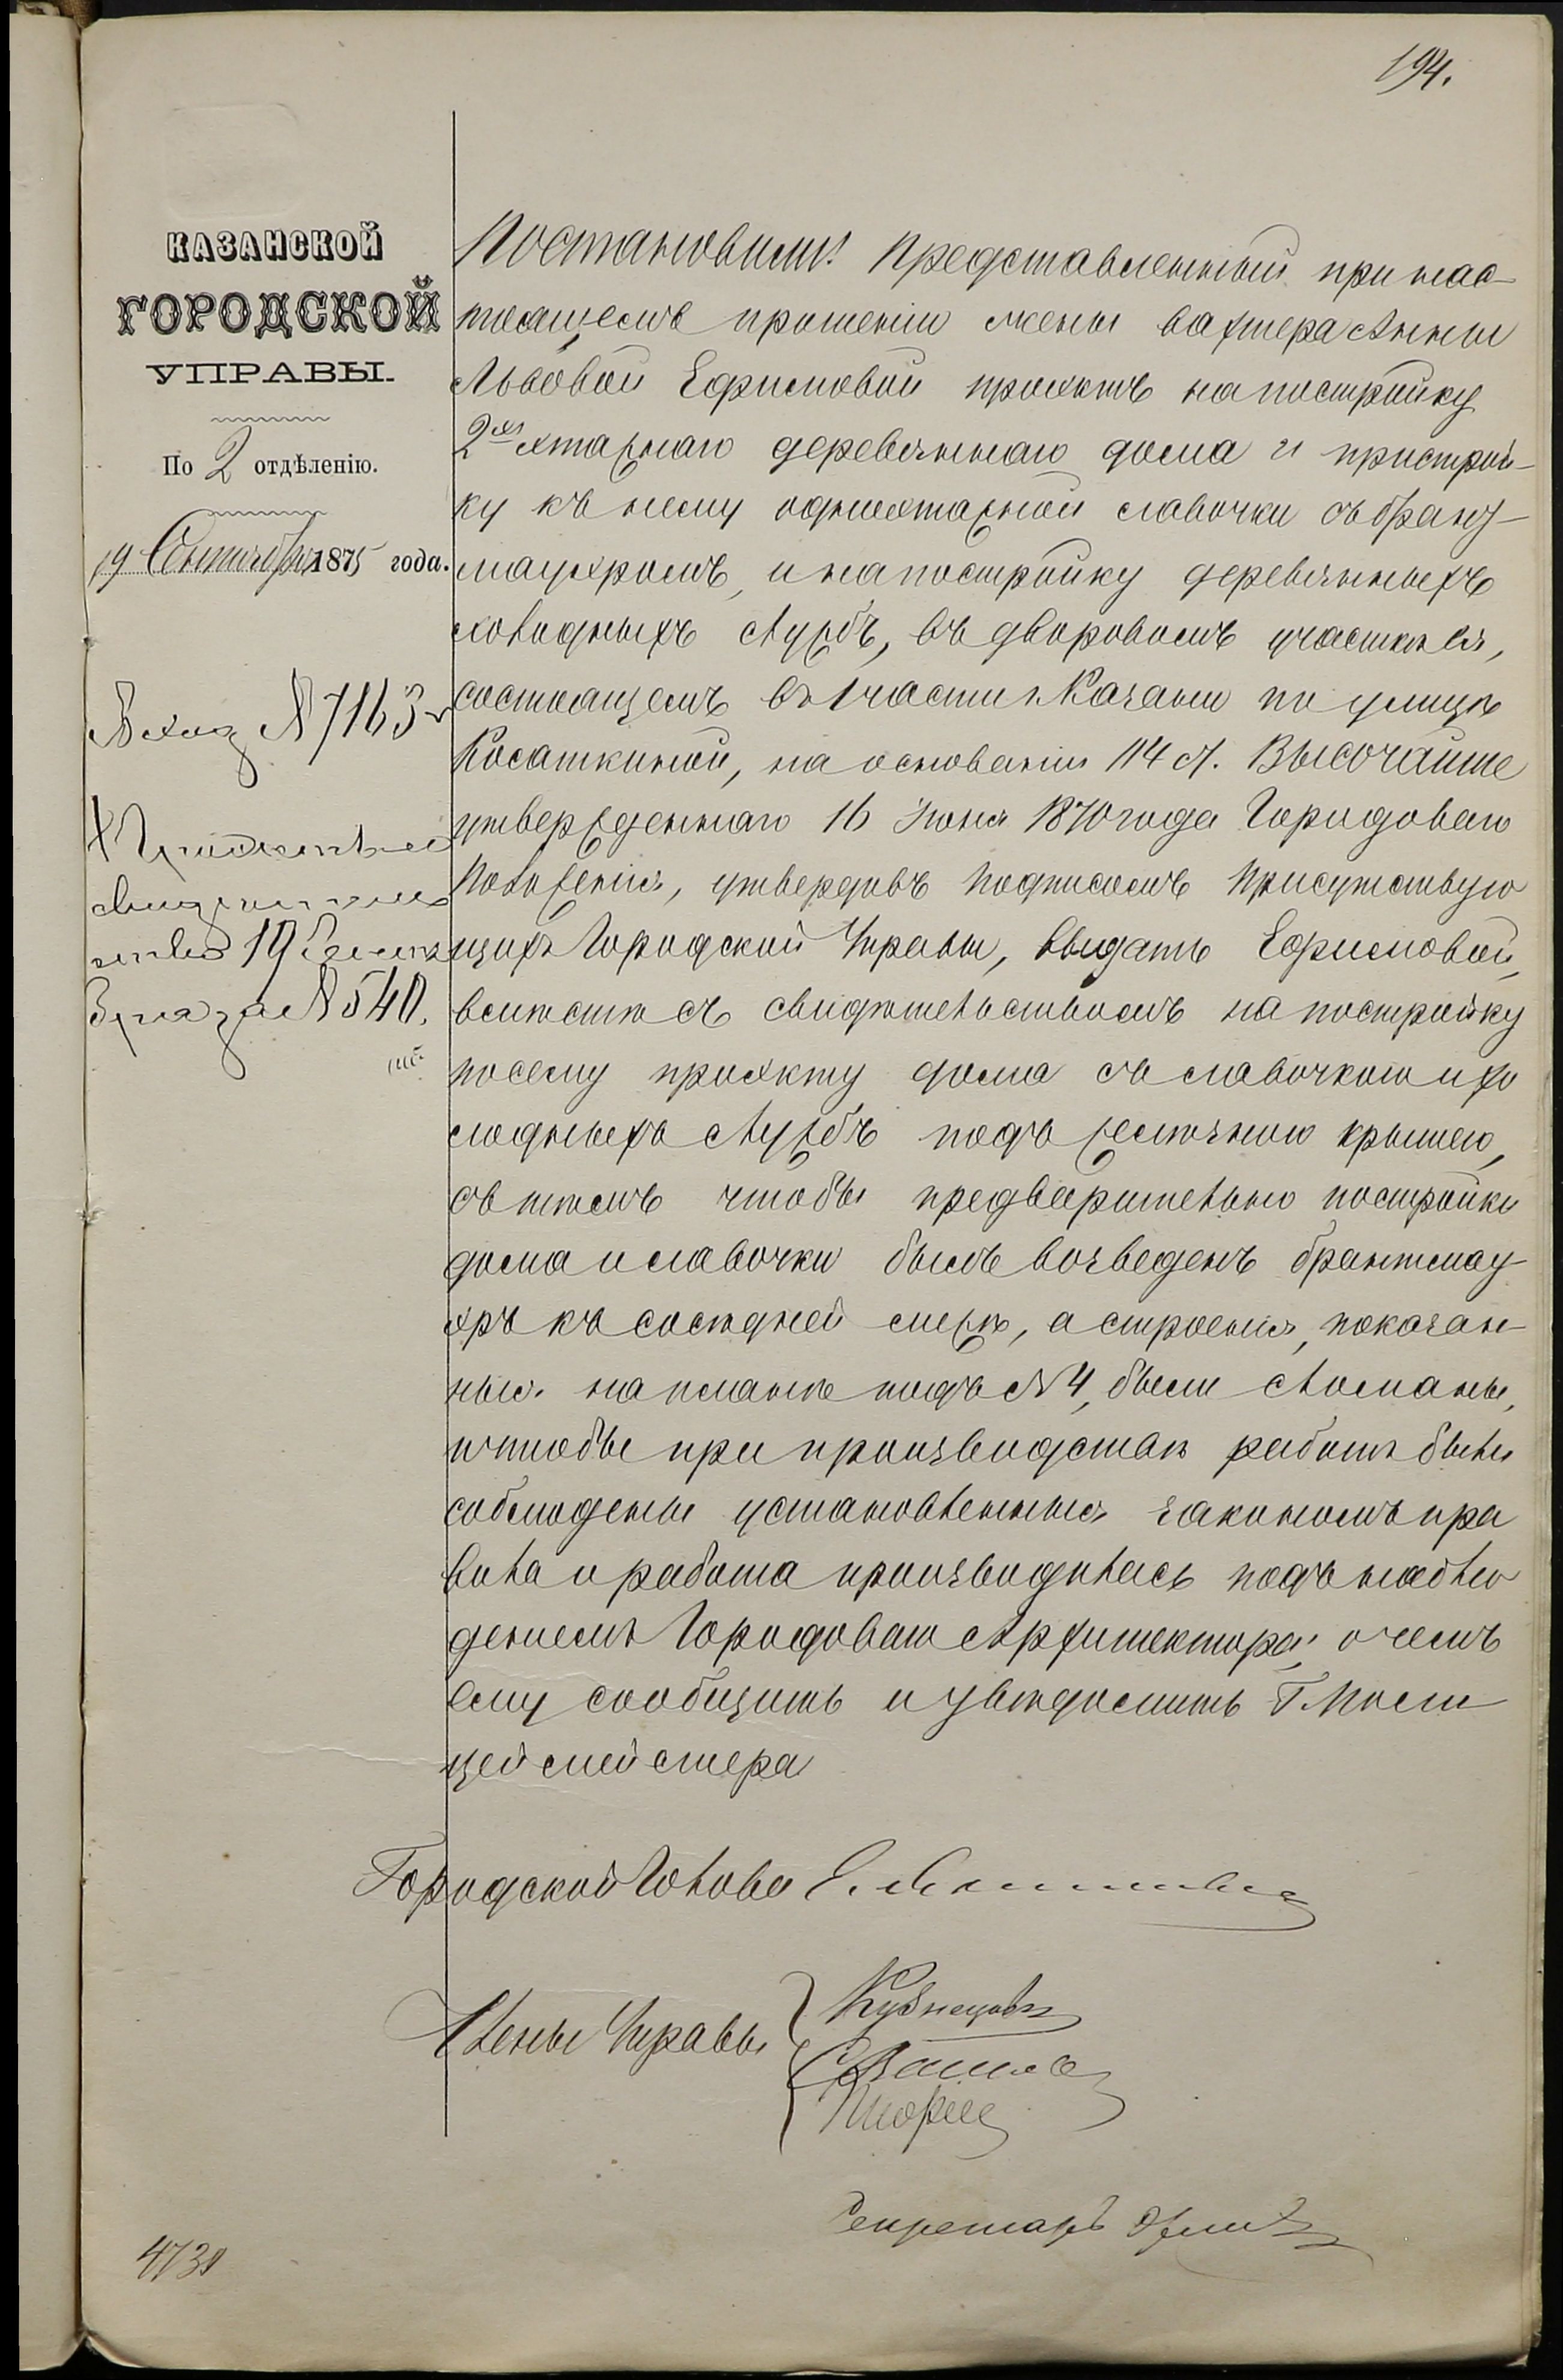 194.
КАЗАНСКОЙ
ГОРОДСКОЙ
УПРАВЫ.
По 2 отдѣленію.
19 Сентября 1875 года.
Вход № 7163
свидѣтель
ство 19 Сентя
бря за № 540.
Постановили: Представленный при нас-
тоящемъ прошеніи жены вахтера Анны
Львовой Ефимовой проэктъ на постройку
2хъ этажнаго деревяннаго дома и пристрой-
ку къ нему одноэтажной лавочки съ бранд-
мауэромъ, и на постройку деревянныхъ
холодныхъ службъ, въ дворовомъ участкѣ ея,
состоящемъ въ 1 части г. Казани по улицѣ
Касаткиной, на основаніи 114 ст. Высочайше
утвержденнаго 16 Іюня 1870 года Городоваго
Положенія, утвердивъ подписомъ Присутствую
щихъ Городской Управы, выдать Ефимовой,
вмѣстѣ съ свидѣтельствомъ на постройку
по сему проэкту дома съ лавочкою и хо
лодныхъ службъ подъ желѣзною крышею,
съ тѣмъ чтобы предварительно постройки
дома и лавочки былъ возведенъ брантмау-
эръ къ сосѣдней межѣ, а строенія, показан-
ныя на планѣ подъ № 4, были сломаны,
и чтобы при производствѣ работъ были
соблюдены установленныя закономъ пра
вила и работа производилась подъ наблю
деніемъ Городоваго Архитектора, о чемъ
ему сообщить и увѣдомить Г. Поли
цеймейстера
Городской Голова Е.
Члены Управы
Кузнецовъ
Секретарь
4730